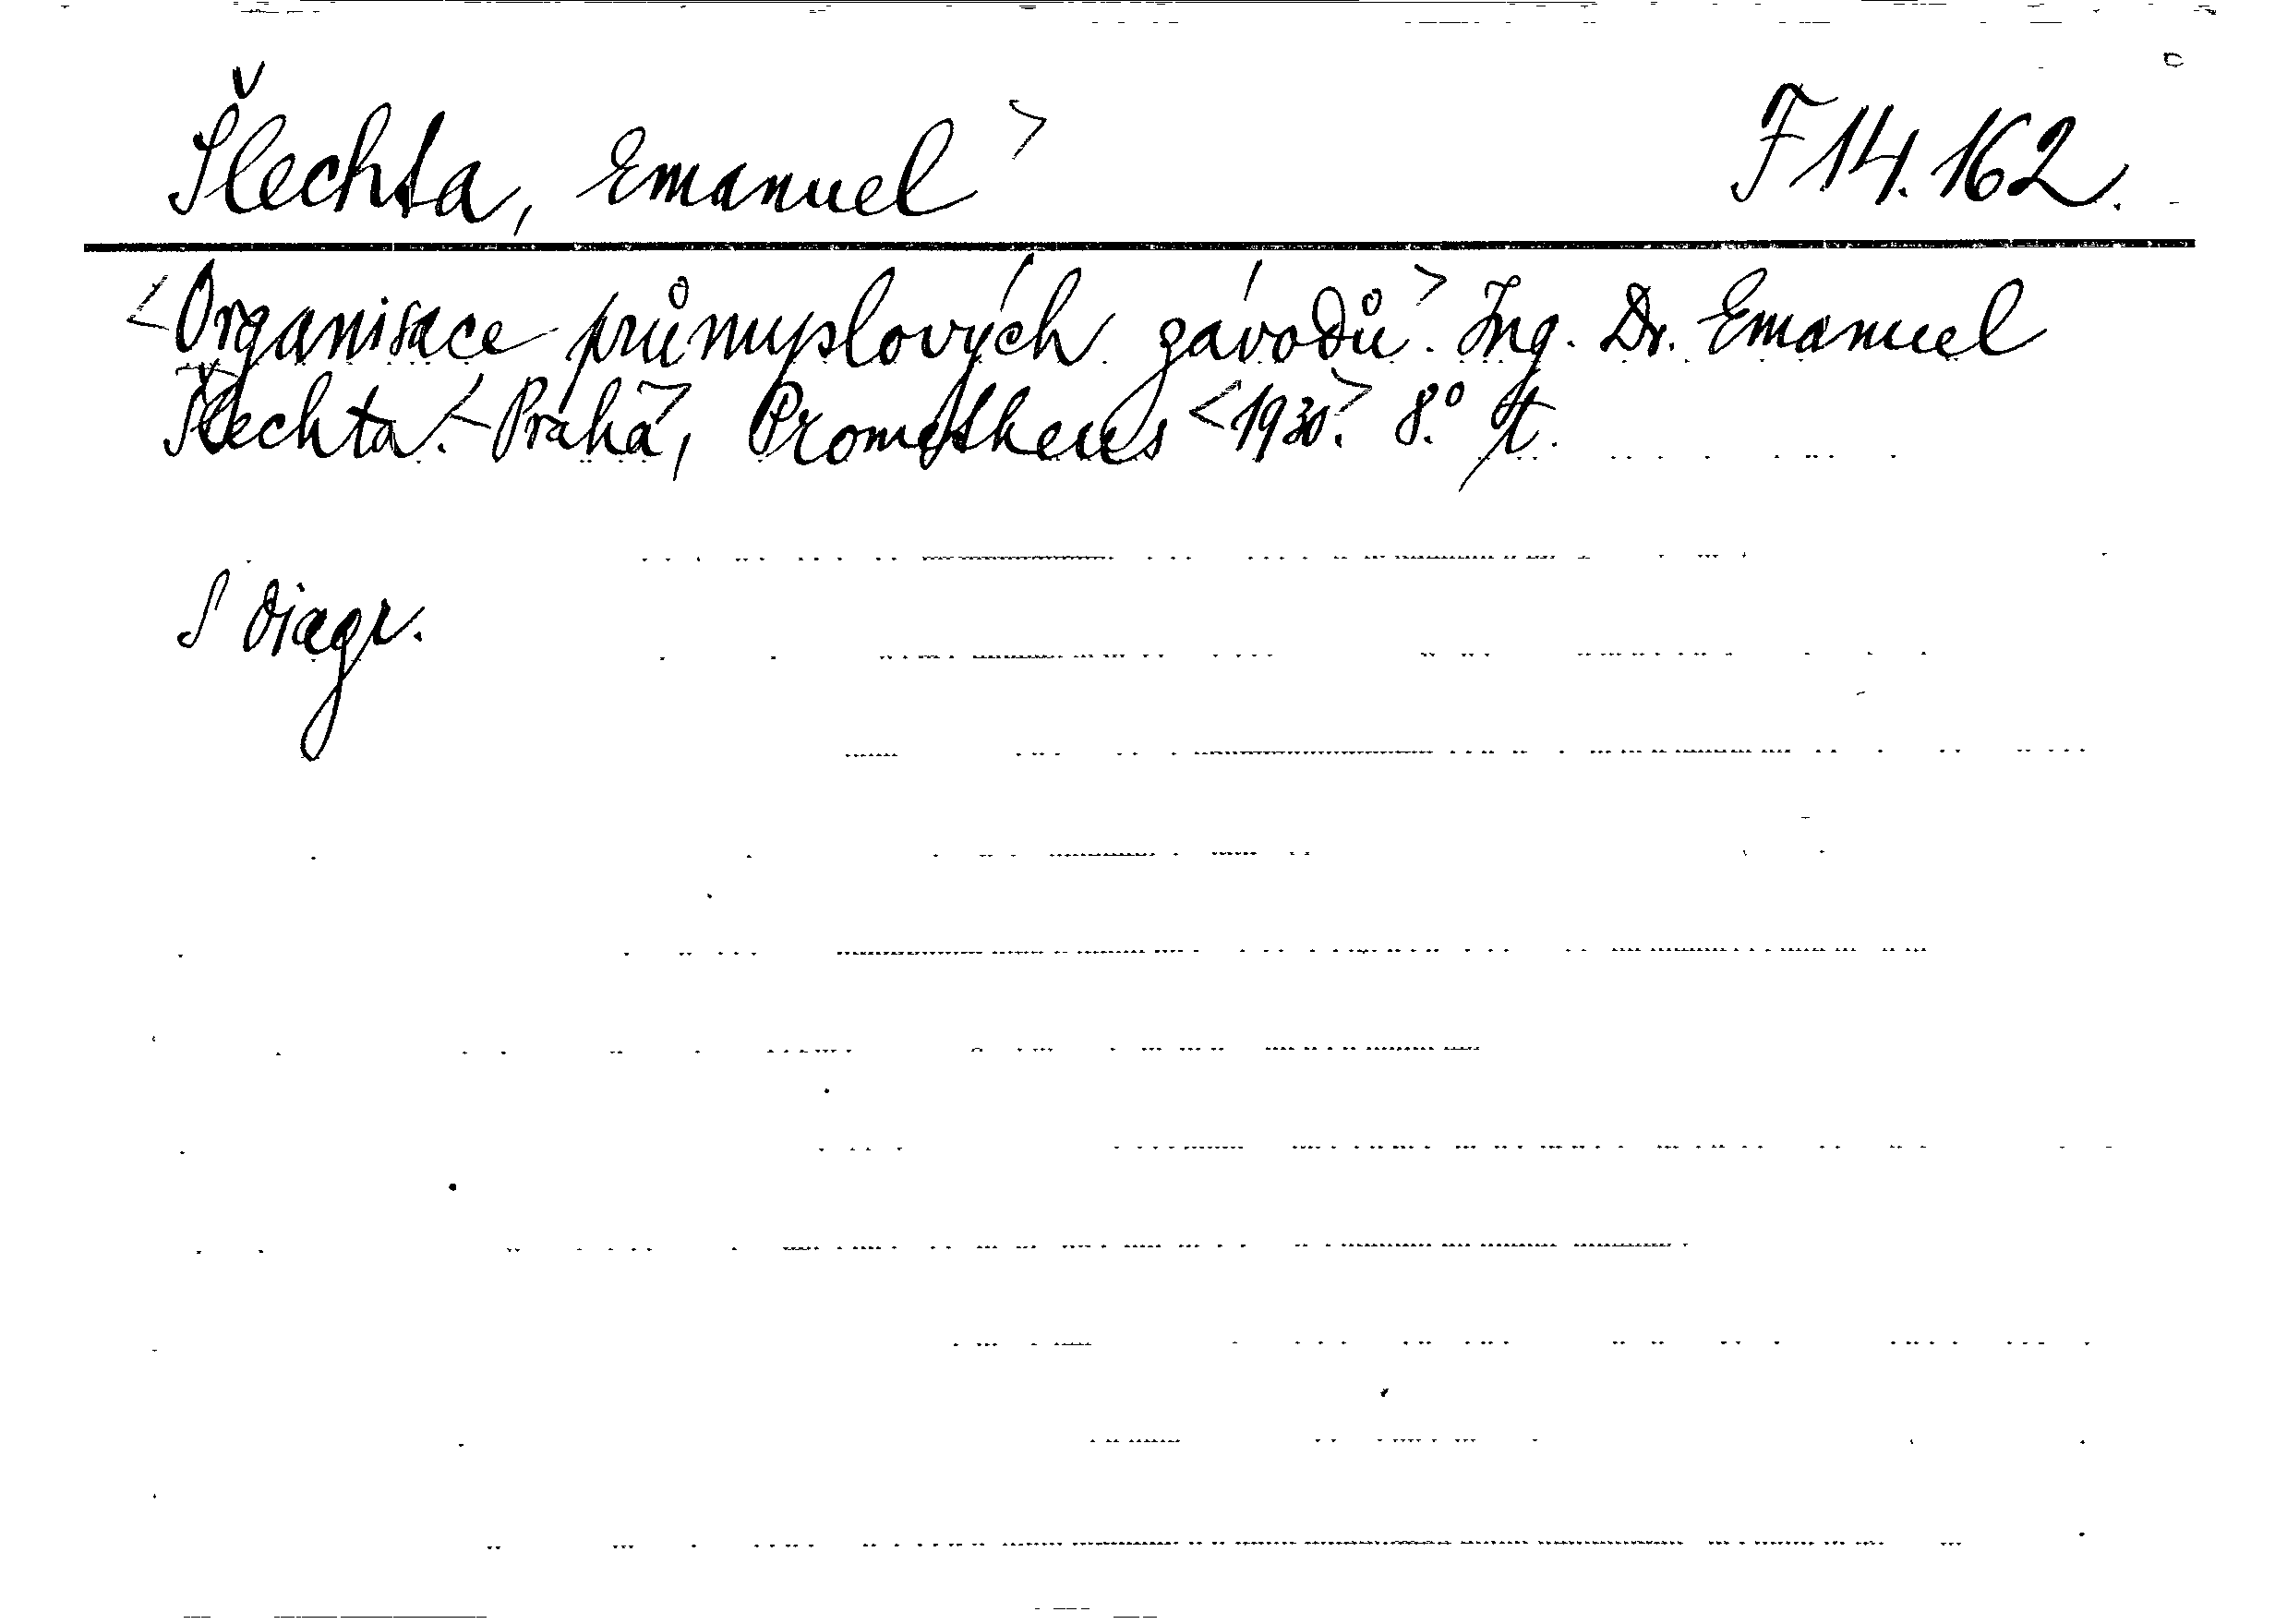 Šlechta, Emanuel> F 14.162.
<Organisace průmyslových závodů>. Ing. Dr. Emanuel
Šlechta. <Praha>, Prometheus <1930>. 8.°
S diagr.